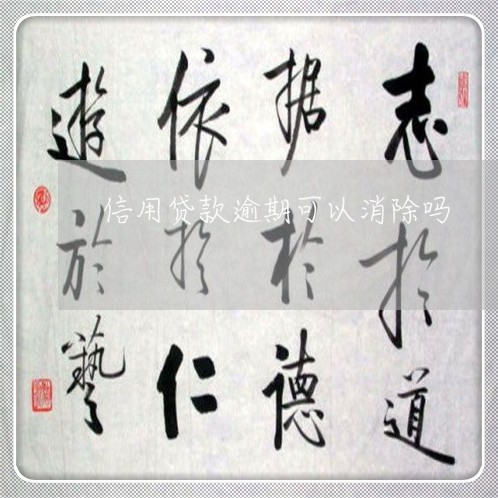 志於道
据於德
依於仁
遊於藝
信用贷款逾期可以消除吗